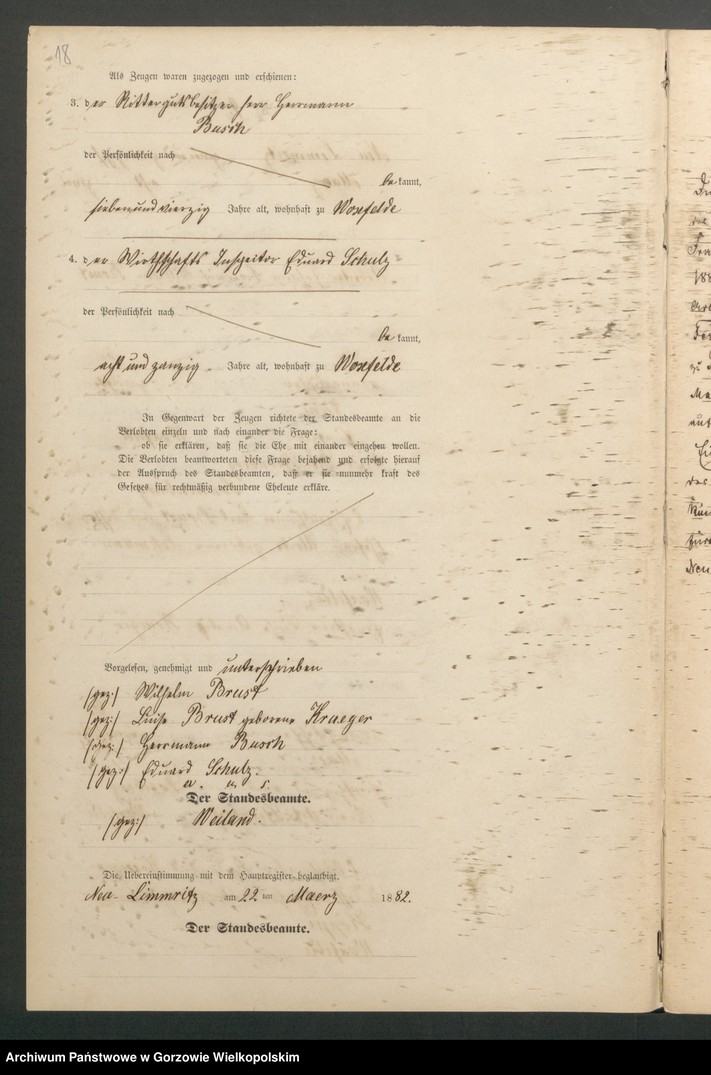 18
Als Zeugen waren zugezogen und erschienen:
3. der Rittergutsbesitzer Herr Herrmann
Busch
der Persönlichkeit nach
be kannt,
siebenundvierzig Jahre alt, wohnhaft zu Woxfelde
4. der Wirthschafts Inspektor Eduard Schulz
der Persönlichkeit nach
be kannt,
acht und zwanzig Jahre alt, wohnhaft zu Woxfelde
In Gegenwart der Zeugen richtete der Standesbeamte an die
Verlobten einzeln und nach einander die Frage:
ob sie erklären, daß sie die Ehe mit einander eingehen wollen.
Die Verlobten beantworteten diese Frage bejahend und erfolgte hierauf
der Ausspruch des Standesbeamten, daß er sie nunmehr kraft des
Gesetzes für rechtmäßig verbundene Eheleute erkläre.
Vorgelesen, genehmigt und unterschrieben
(gez:) Wilhelm Brust
(gez:) Luise Brust geborene Krueger
(gez:) Herrmann Busch
(gez:) Eduard Schulz.
Der Standesbeamte.
(gez:) Weiland.
Die Uebereinstimmung mit dem Hauptregister beglaubigt.
Neu-Limmritz am 22 ten Maerz 1882.
Der Standesbeamte.
Archiwum Państwowe w Gorzowie Wielkopolskim